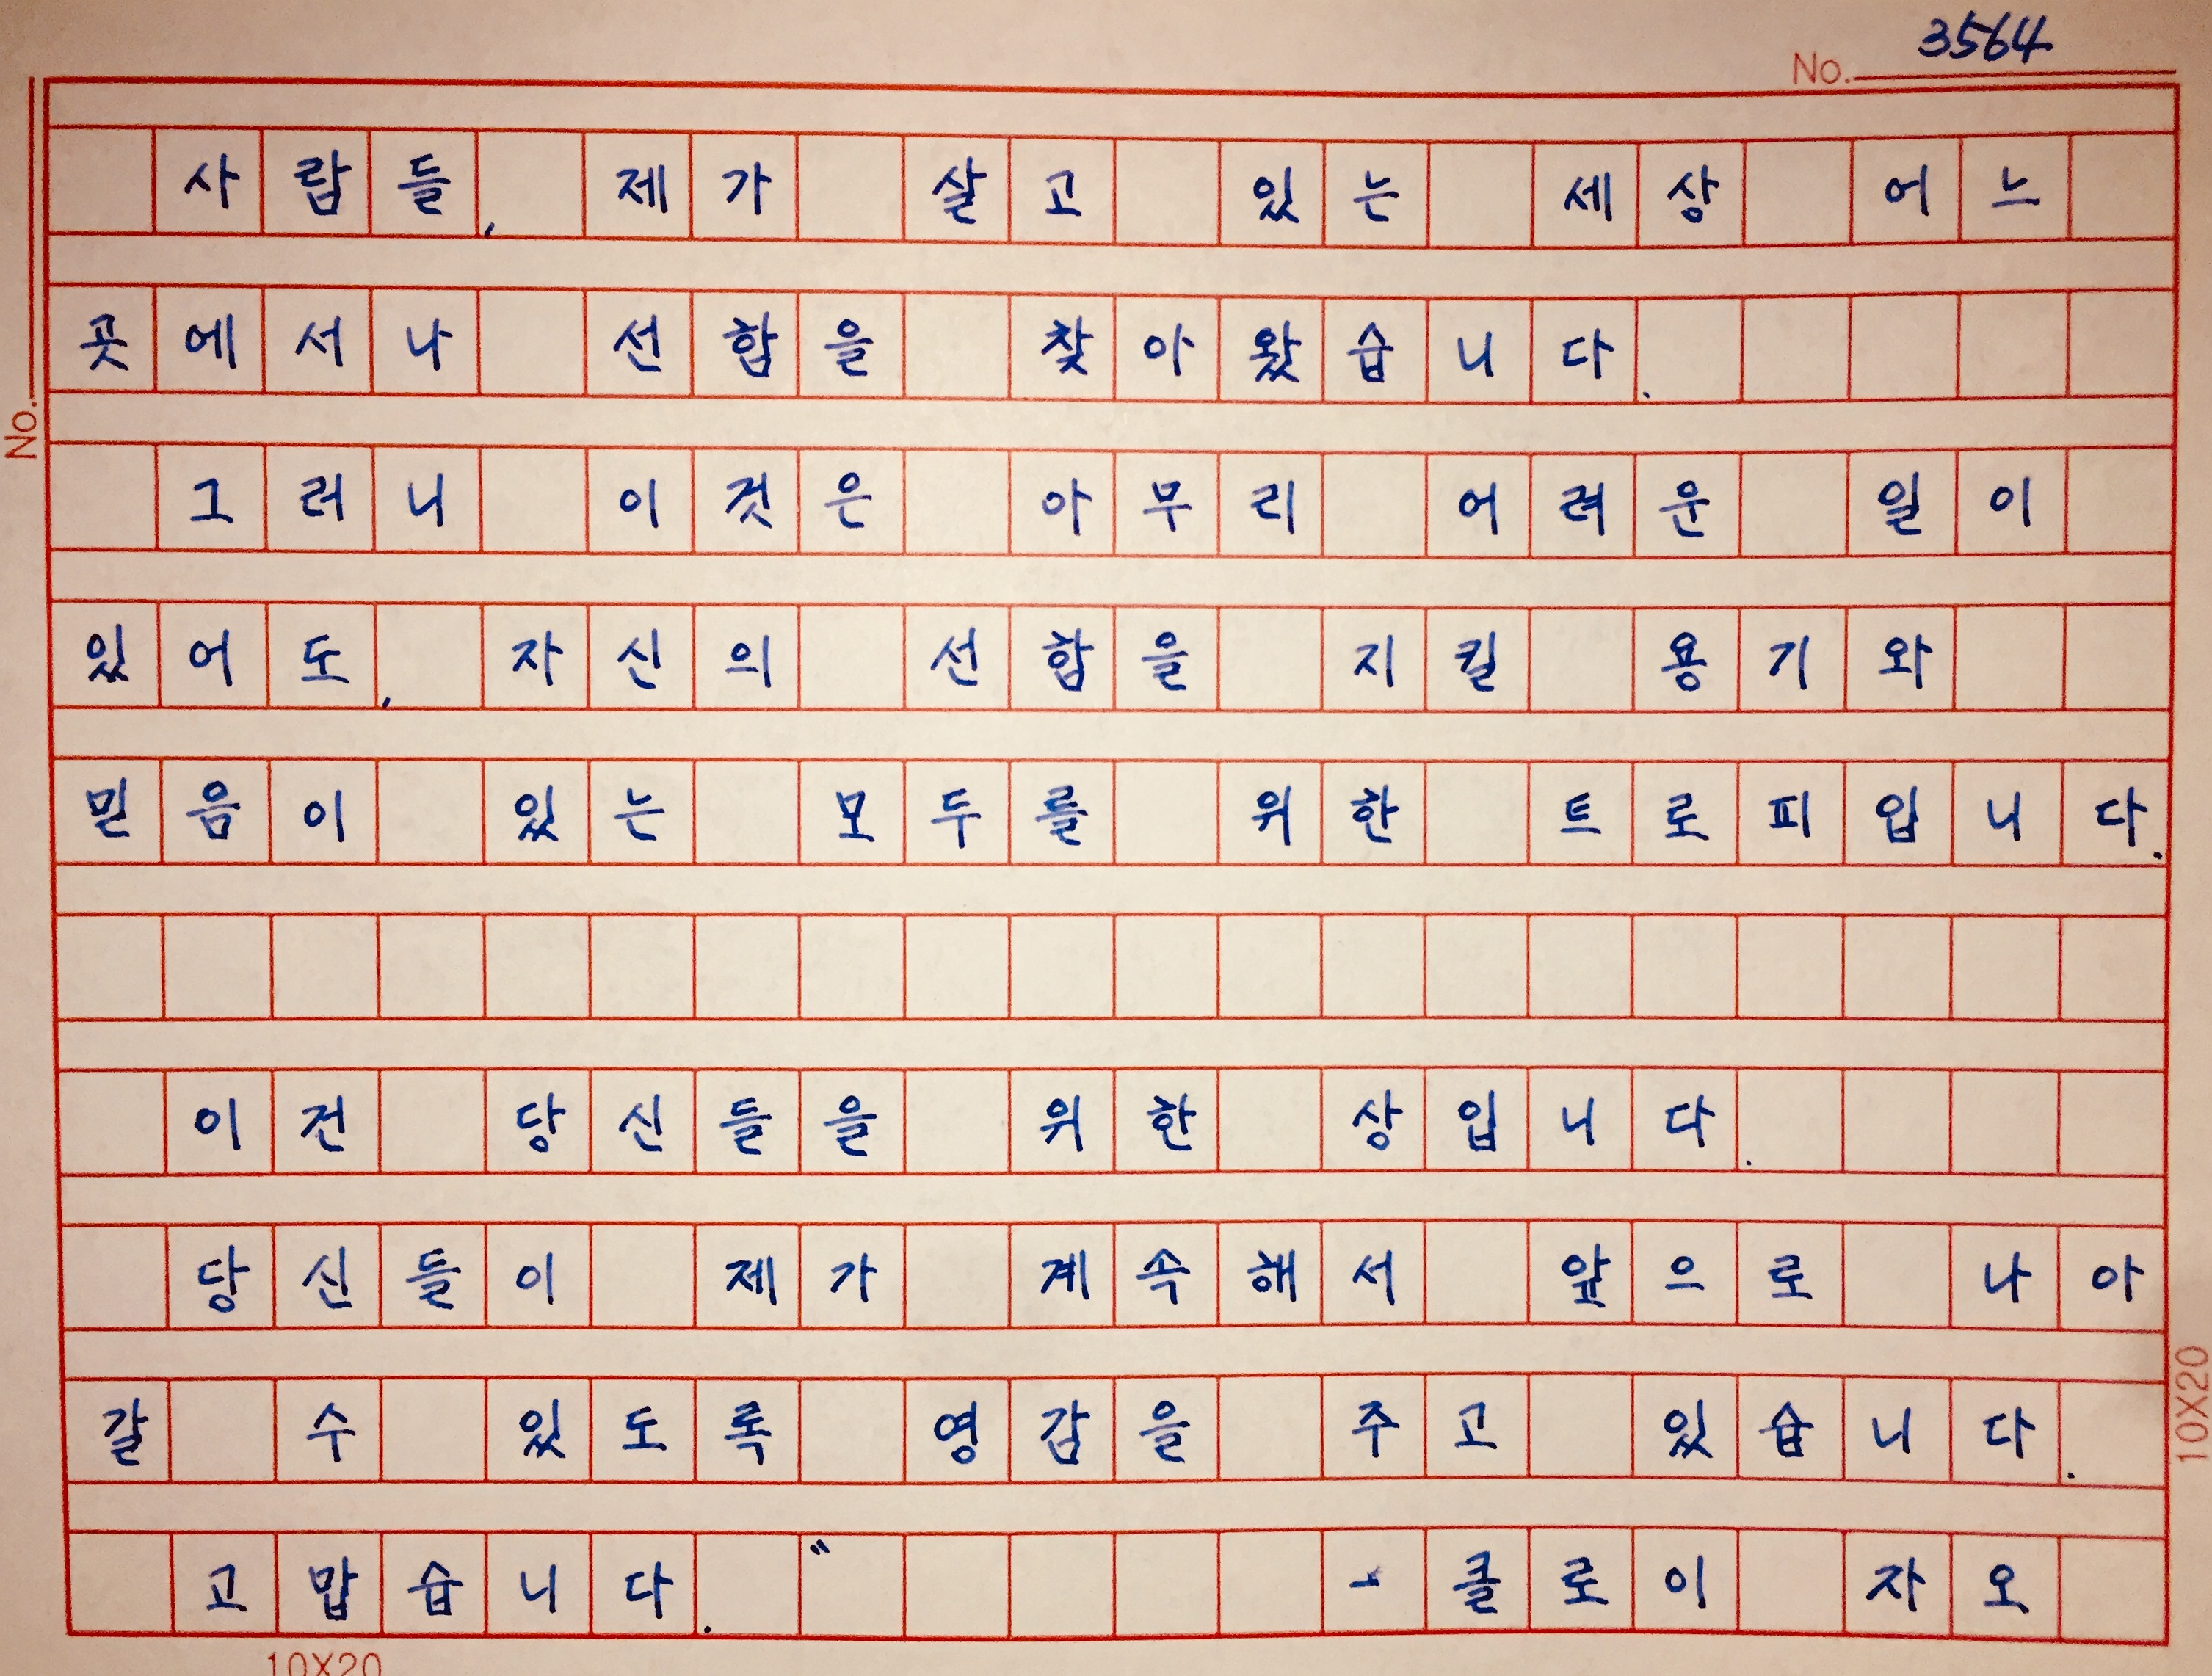 3564
No.
사람들, 제가 살고 있는 세상 어느
곳에서나 선함을 찾아왔습니다.
No.
그러니 이것은 아무리 어려운 일이
있어도, 자신의 선함을 지킬 용기와
믿음이 있는 모두를 위한 트로피입니다.
이건 당신들을 위한 상입니다.
당신들이 제가 계속해서 앞으로 나아
갈 수 있도록 영감을 주고 있습니다.
10X20
고맙습니다." - 클로이 자오
10X20